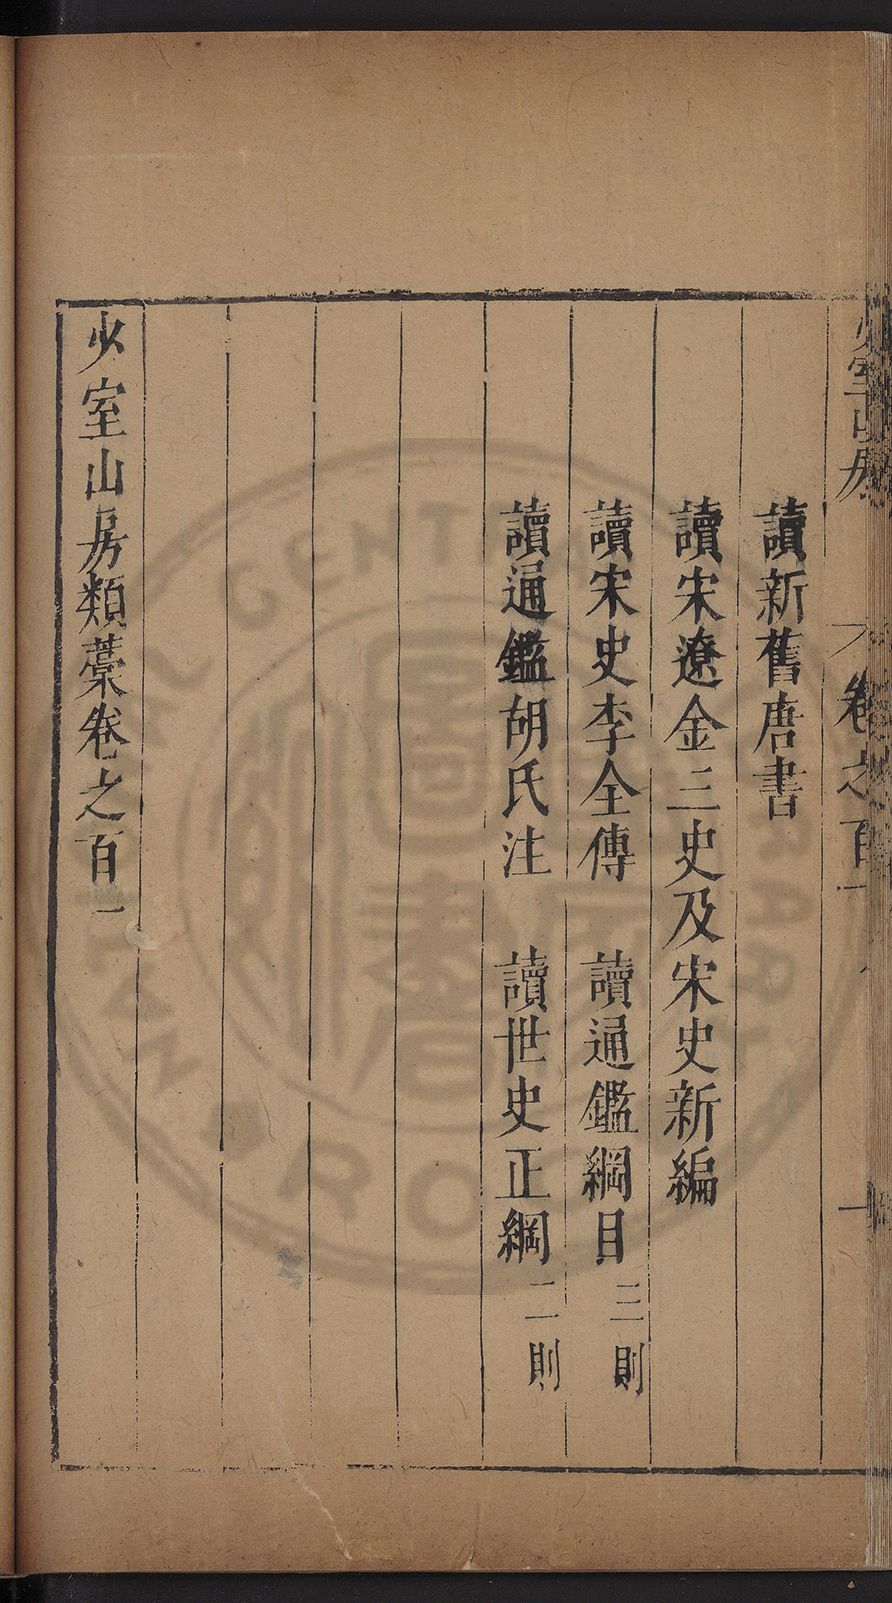 少室山房
卷之百一
一
讀新舊唐書
讀宋遼金三史及宋史新編
讀宋史李全傳　讀通鑑綱目三則
讀通鑑胡氏注　讀世史正綱二則
少室山房類藁卷之百一